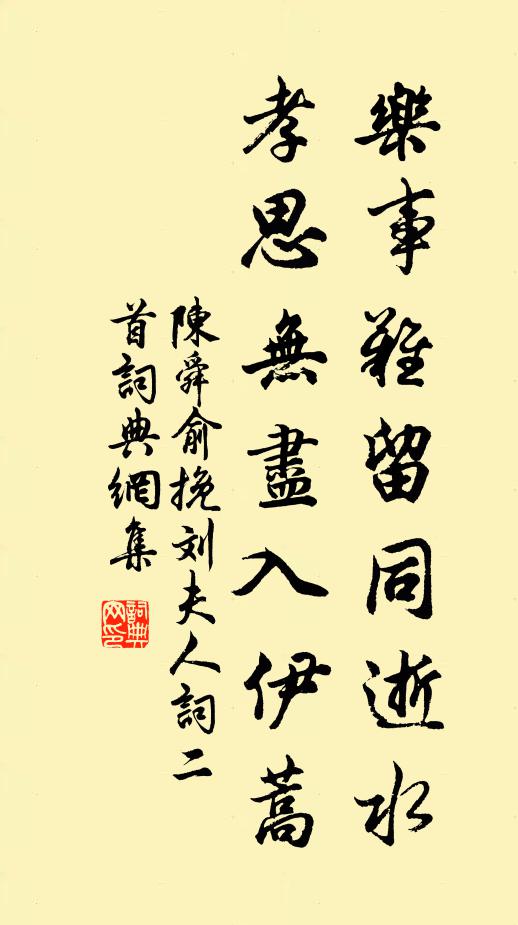 樂事難留同逝水
孝思無盡入伊蒿
陳舜俞挽刘夫人詞二
首詞典網集
詞典网印